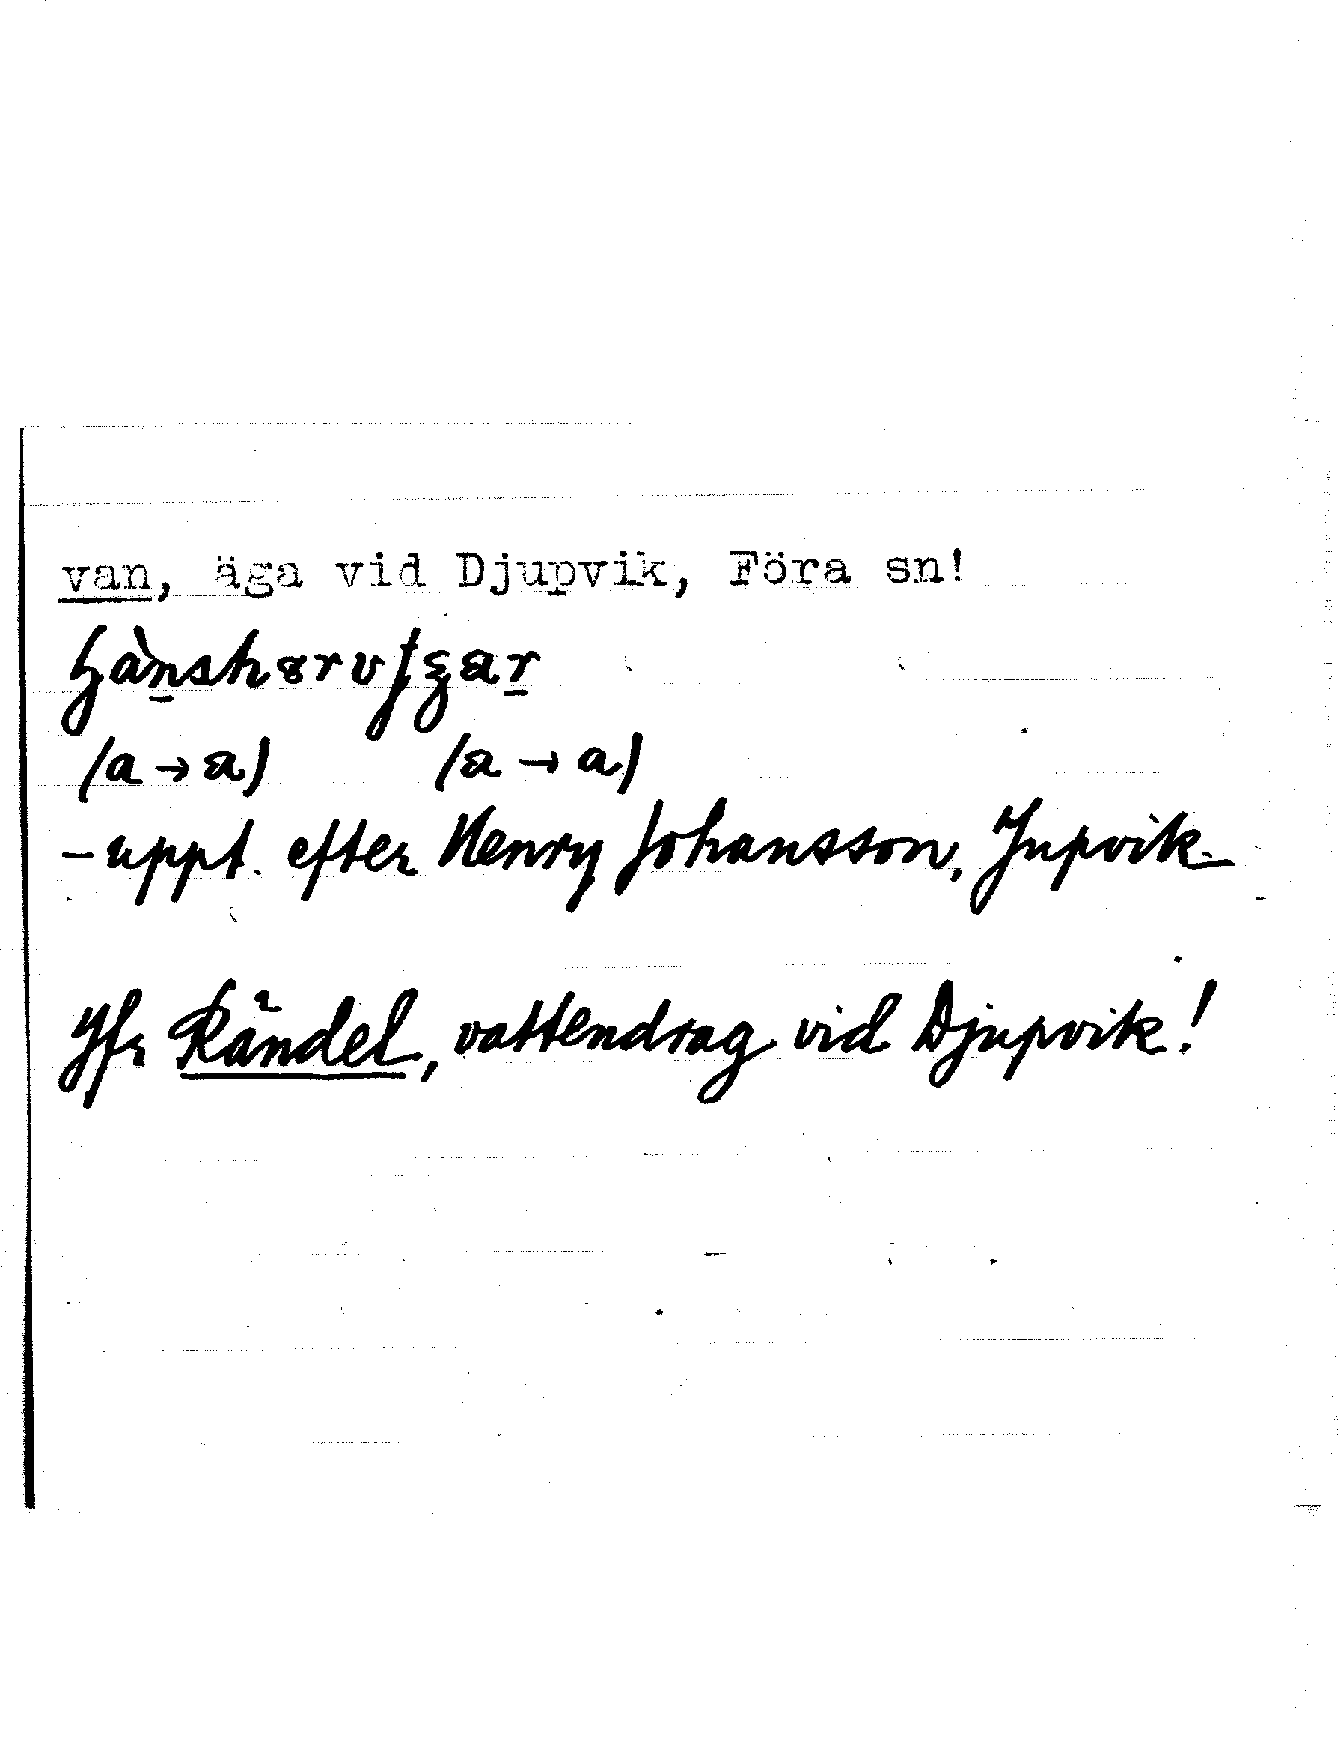 van, äga vid Djupvik, Föra sn!
(a → a) (a → a)
- uppt. efter Henry Johansson, Jupvik
Jfr Rändel, vattendrag vid Djupvik!